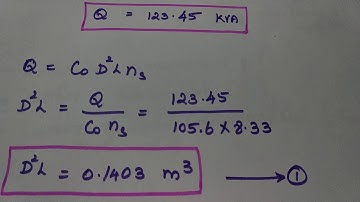 Q = 123.45 KVA
Q = Co D²L ns
D²L = Q / Co ns = 123.45 / 105.6 × 8.33
D²L = 0.1403 m³ → ①